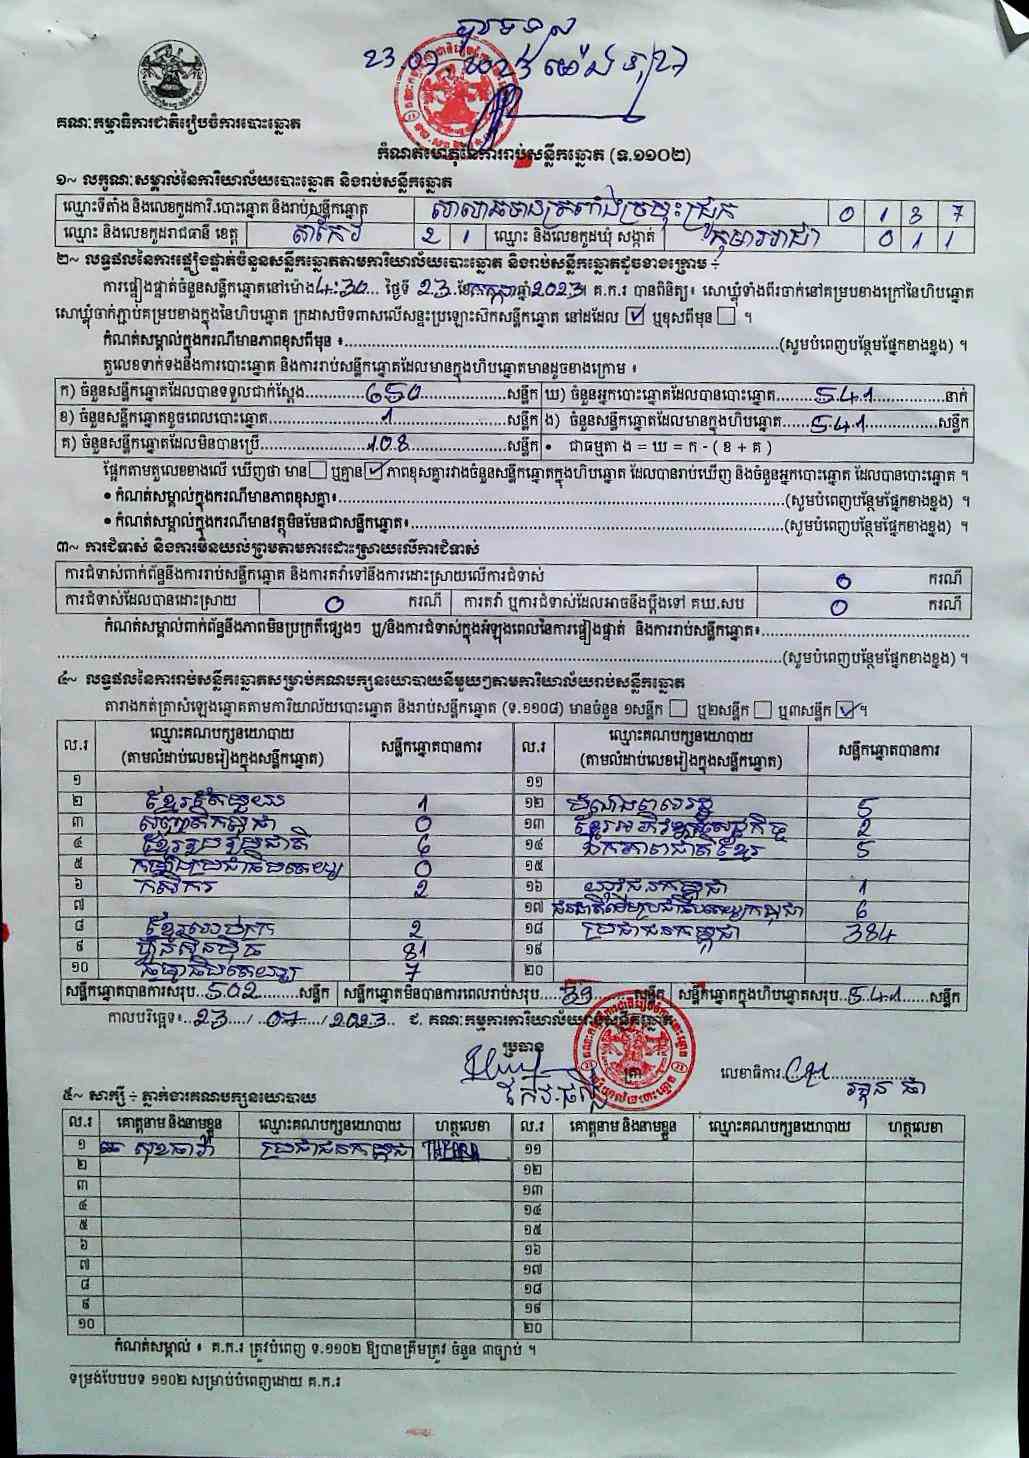 ទូរទស្ស
23.07.2023 ម៉េង ឡុង
គណៈកម្មាធិការជាតិរៀបចំការបោះឆ្នោត
កំណត់ហេតុនៃការរាប់សន្លឹកឆ្នោត (ទ.១១០២)
១~ លក្ខណៈសម្គាល់នៃការិយាល័យបោះឆ្នោត និងរាប់សន្លឹកឆ្នោត
ឈ្មោះទីតាំង និងលេខកូដការិ.បោះឆ្នោត និងរាប់សន្លឹកឆ្នោត 0 1 8 7
ឈ្មោះ និងលេខកូដរាជធានី ខេត្ត តាកែវ 2 1 ឈ្មោះ និងលេខកូដឃុំ សង្កាត់ កុមាររាជា 0 1 1
២~ លទ្ធផលនៃការផ្ទៀងផ្ទាត់ចំនួនសន្លឹកឆ្នោតតាមការិយាល័យបោះឆ្នោត និងរាប់សន្លឹកឆ្នោតដូចខាងក្រោម ÷
ការផ្ទៀងផ្ទាត់ចំនួនសន្លឹកឆ្នោតនៅម៉ោង 4:30 ថ្ងៃទី 23 ខែកក្កដា ឆ្នាំ 2023។ គ.ក.រ បានពិនិត្យ៖ សោឃ្លុំទាំងពីរចាក់នៅគម្របខាងក្រៅនៃហិបឆ្នោត
សោឃ្លុំចាក់ភ្ជាប់គម្របខាងក្នុងនៃហិបឆ្នោត ក្រដាសបិទពាសលើសន្ទះប្រឡោះស៊កសន្លឹកឆ្នោត នៅដដែល ☑ ឬខុសពីមុន ☐ ។
កំណត់សម្គាល់ក្នុងករណីមានភាពខុសពីមុន ៖ (សូមបំពេញបន្ថែមផ្នែកខាងខ្នង) ។
តួលេខទាក់ទងនឹងការបោះឆ្នោត និងការរាប់សន្លឹកឆ្នោតដែលមានក្នុងហិបឆ្នោតមានដូចខាងក្រោម ៖
ក) ចំនួនសន្លឹកឆ្នោតដែលបានទទួលជាក់ស្តែង 650 សន្លឹក ឃ) ចំនួនអ្នកបោះឆ្នោតដែលបានបោះឆ្នោត 541 នាក់
ខ) ចំនួនសន្លឹកឆ្នោតខូចពេលបោះឆ្នោត 1 សន្លឹក ង) ចំនួនសន្លឹកឆ្នោតដែលមានក្នុងហិបឆ្នោត 541 សន្លឹក
គ) ចំនួនសន្លឹកឆ្នោតដែលមិនបានប្រើ 108 សន្លឹក • ជាធម្មតា ង = ឃ = ក - ( ខ + គ )
ផ្អែកតាមតួលេខខាងលើ ឃើញថា មាន ☐ ឬគ្មាន ☑ ភាពខុសគ្នារវាងចំនួនសន្លឹកឆ្នោតក្នុងហិបឆ្នោត ដែលបានរាប់ឃើញ និងចំនួនអ្នកបោះឆ្នោត ដែលបានបោះឆ្នោត ។
• កំណត់សម្គាល់ក្នុងករណីមានភាពខុសគ្នា៖ (សូមបំពេញបន្ថែមផ្នែកខាងខ្នង) ។
• កំណត់សម្គាល់ក្នុងករណីមានវត្ថុមិនមែនជាសន្លឹកឆ្នោត៖ (សូមបំពេញបន្ថែមផ្នែកខាងខ្នង) ។
៣~ ការជំទាស់ និងការមិនយល់ព្រមតាមការដោះស្រាយលើការជំទាស់
ការជំទាស់ពាក់ព័ន្ធនឹងការរាប់សន្លឹកឆ្នោត និងការតវ៉ាទៅនឹងការដោះស្រាយលើការជំទាស់ 0 ករណី
ការជំទាស់ដែលបានដោះស្រាយ 0 ករណី ការតវ៉ា ឬការជំទាស់ដែលអាចនឹងប្តឹងទៅ គឃ.សប 0 ករណី
កំណត់សម្គាល់ពាក់ព័ន្ធនឹងភាពមិនប្រក្រតីផ្សេងៗ ឬ/និងការជំទាស់ក្នុងអំឡុងពេលនៃការផ្ទៀងផ្ទាត់ និងការរាប់សន្លឹកឆ្នោត៖
(សូមបំពេញបន្ថែមផ្នែកខាងខ្នង) ។
៤~ លទ្ធផលនៃការរាប់សន្លឹកឆ្នោតសម្រាប់គណបក្សនយោបាយនីមួយៗតាមការិយាល័យរាប់សន្លឹកឆ្នោត
តារាងកត់ត្រាសំឡេងឆ្នោតតាមការិយាល័យបោះឆ្នោត និងរាប់សន្លឹកឆ្នោត (ទ.១១០៨) មានចំនួន ១សន្លឹក ☐ ឬ២សន្លឹក ☐ ឬ៣សន្លឹក ☑ ។
ល.រ ឈ្មោះគណបក្សនយោបាយ (តាមលំដាប់លេខរៀងក្នុងសន្លឹកឆ្នោត) សន្លឹកឆ្នោតបានការ ល.រ ឈ្មោះគណបក្សនយោបាយ (តាមលំដាប់លេខរៀងក្នុងសន្លឹកឆ្នោត) សន្លឹកឆ្នោតបានការ
១ ១១
២ ខ្មែរតែមួយ 1 ១២ 5
៣ សញ្ជាតិកម្ពុជា 0 ១៣ ខ្មែរអភិវឌ្ឍន៍សេដ្ឋកិច្ច 2
៤ ខ្មែររួបរួមជាតិ 6 ១៤ ឯកភាពជាតិខ្មែរ 5
៥ កម្លាំងប្រជាធិបតេយ្យ 0 ១៥
៦ កសិករ 2 ១៦ យុវជនកម្ពុជា 1
៧ ១៧ ជនជាតិដើមប្រជាធិបតេយ្យកម្ពុជា 6
៨ ខ្មែរឈប់ក្រ 2 ១៨ ប្រជាជនកម្ពុជា 384
៩ ហ៊្វុនស៊ិនប៉ិច 81 ១៩
១០ ធម្មាធិបតេយ្យ 7 ២០
សន្លឹកឆ្នោតបានការសរុប 502 សន្លឹក សន្លឹកឆ្នោតមិនបានការពេលរាប់សរុប 39 សន្លឹក សន្លឹកឆ្នោតក្នុងហិបឆ្នោតសរុប 541 សន្លឹក
កាលបរិច្ឆេទ៖ 23 / 07 / 2023 ជ. គណៈកម្មការការិយាល័យរាប់សន្លឹកឆ្នោត
ប្រធាន
ត្រា លេខាធិការ
កែវ ផល្លី
៥~ សាក្សី ÷ ភ្នាក់ងារគណបក្សនយោបាយ
ល.រ គោត្តនាម និងនាមខ្លួន ឈ្មោះគណបក្សនយោបាយ ហត្ថលេខា ល.រ គោត្តនាម និងនាមខ្លួន ឈ្មោះគណបក្សនយោបាយ ហត្ថលេខា
១ សុខ ធាវ៉ា ប្រជាជនកម្ពុជា ១១
២ ១២
៣ ១៣
៤ ១៤
៥ ១៥
៦ ១៦
៧ ១៧
៨ ១៨
៩ ១៩
១០ ២០
កំណត់សម្គាល់ ៖ គ.ក.រ ត្រូវបំពេញ ទ.១១០២ ឱ្យបានត្រឹមត្រូវ ចំនួន ៣ច្បាប់ ។
ទម្រង់បែបបទ ១១០២ សម្រាប់បំពេញដោយ គ.ក.រ